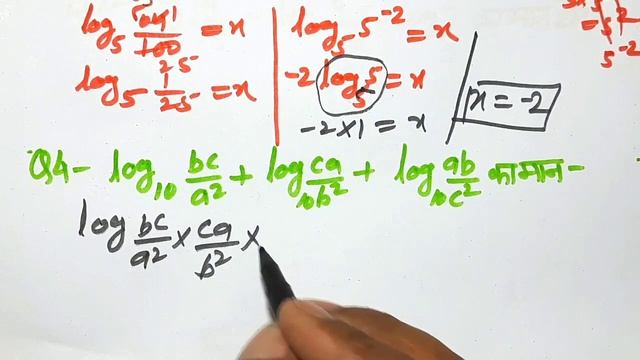 log₅ 0.04/100 = x
log₅ 1/25 = x
log₅ 5⁻² = x
-2 log₅ 5 = x
-2×1 = x
x = -2
5⁻²
Q4- log₁₀ bc/a² + log₁₀ ca/b² + log₁₀ ab/c² का मान -
log bc/a² × ca/b² ×